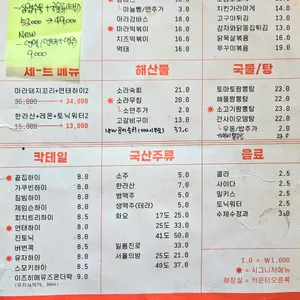 53,000 → 49,000
New
9,000
마라감바스 18.0
마라떡볶이 17.0
치즈떡볶이 17.0
먹태 22.0
치킨가라아게 23.0
고구마튀김 21.0
감자와닭똥집튀김 23.0
닭목살볶음 23.0
쭈꾸미볶음 23.0
세-트 메뉴
마라돼지꼬리+연태하이2
36,000 → 34,000
한라산+레몬+토닉워터2
15,000 → 13,000
해산물
소라숙회 21.0
소라무침 20.0
+ 소면추가 2.0
고갈비구이 23.0
32.0
국물/탕
토마토짬뽕탕 22.0
해물짬뽕탕 22.0
소고기짬뽕탕 23.0
간사이오뎅탕 22.0
+ 우동/밥추가 2.0
칵테일
꿀집하이 8.0
가쿠빈하이 8.0
짐빔하이 8.0
제임슨하이 8.0
피치트리하이 8.5
연태하이 8.5
진토닉 8.5
버번콕 8.5
유자하이 8.5
스모키하이 8.5
이즈히메유즈온더락 9.0
국산주류
소주 5.0
한라산 7.0
병맥주 5.0
생맥주(테라) 5.0
화요 17도 25.0
25도 33.0
41도 50.0
일품진로 33.0
서울의밤 25도 21.0
40도 37.0
음료
콜라 2.5
사이다 2.5
밀키스 2.5
토닉워터 2.5
수제수정과 3.0
1.0 = ₩1,000
: 시그니처메뉴
화장실 : 카운터오른쪽